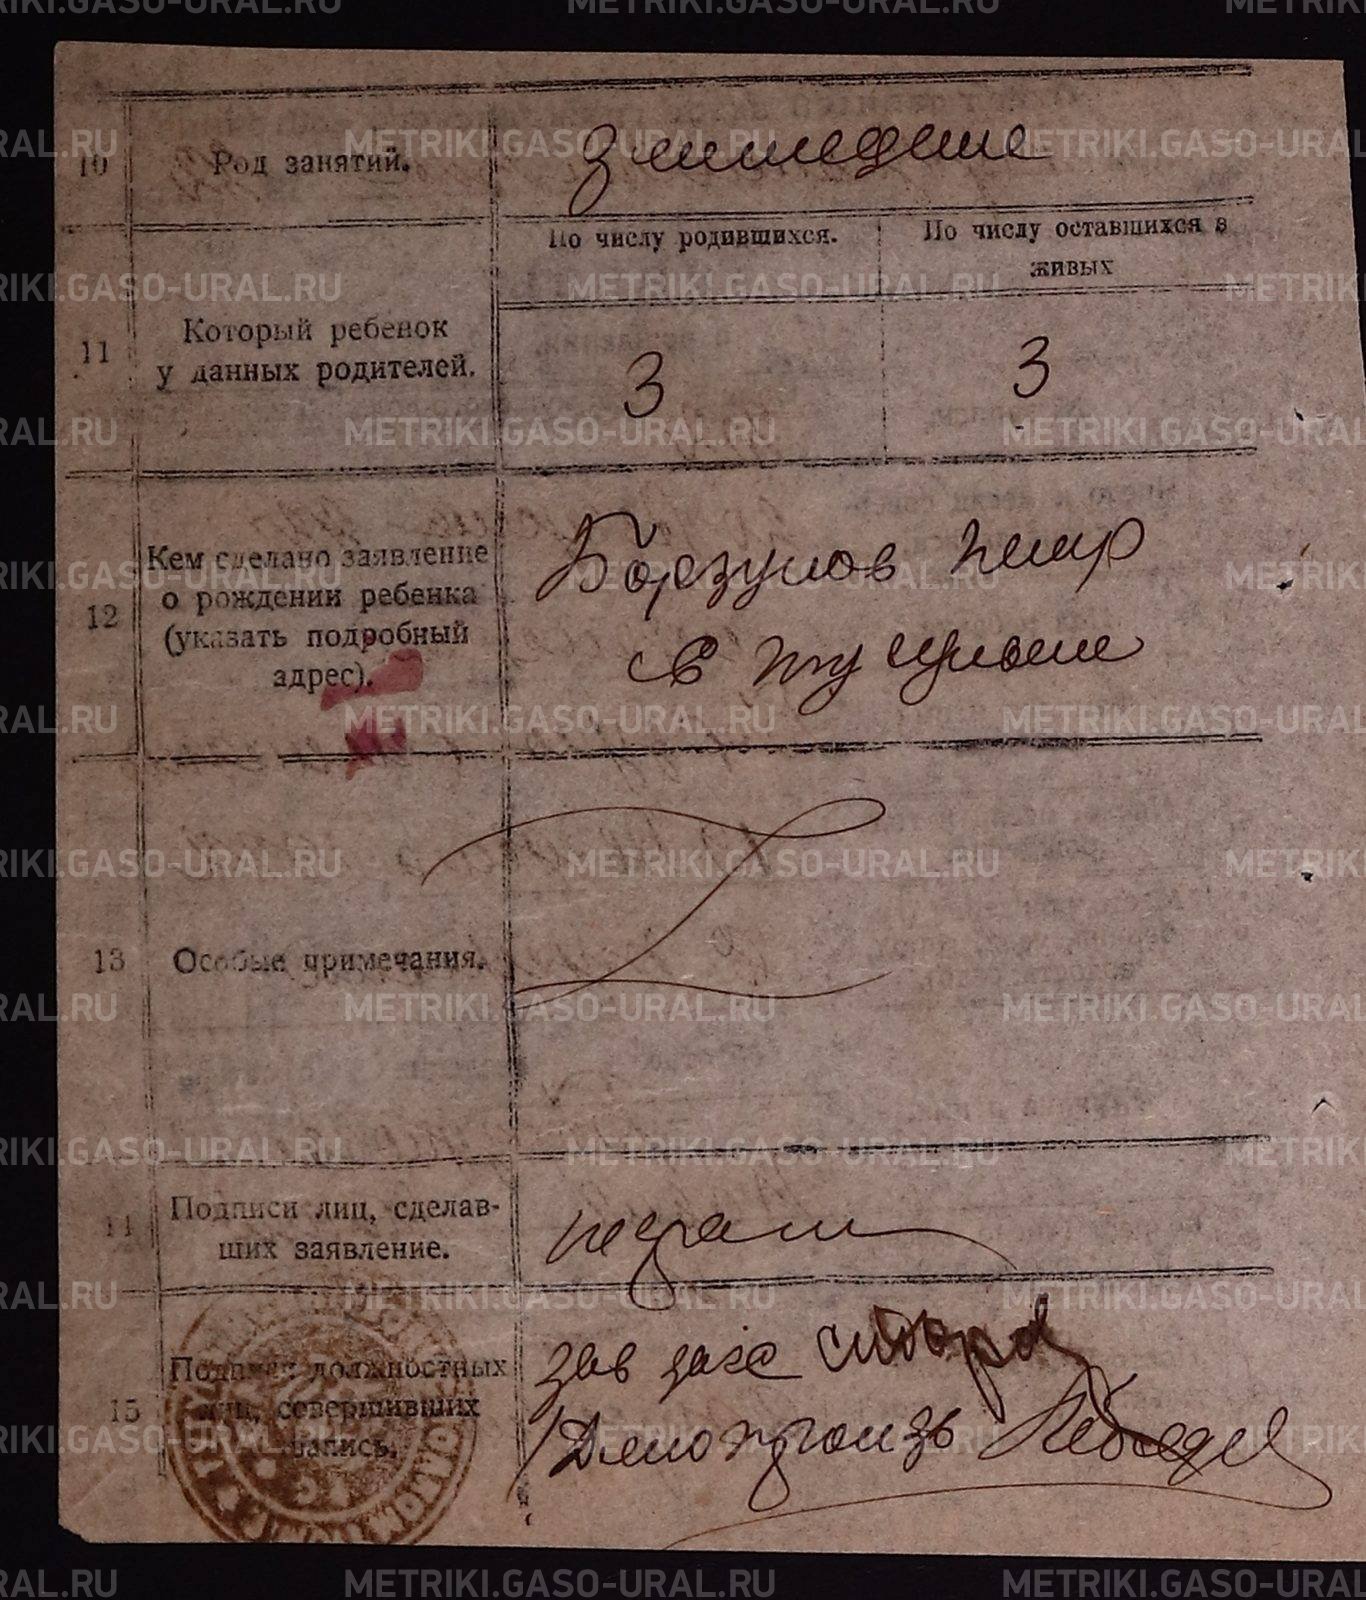 10 Род занятий. Земледелие
По числу родившихся. По числу оставшихся в
живых
11 Который ребенок
у данных родителей.
3 3
12 Кем сделано заявление
о рождении ребенка
(указать подробный
адрес).
Борзунов Петр
С
13 Особые примечания.
14 Подписи лиц, сделав-
ших заявление.
15 Подписи должностных
лиц, совершивших
запись.
зав загс
Делопроизв
METRIKI.GASO-URAL.RU